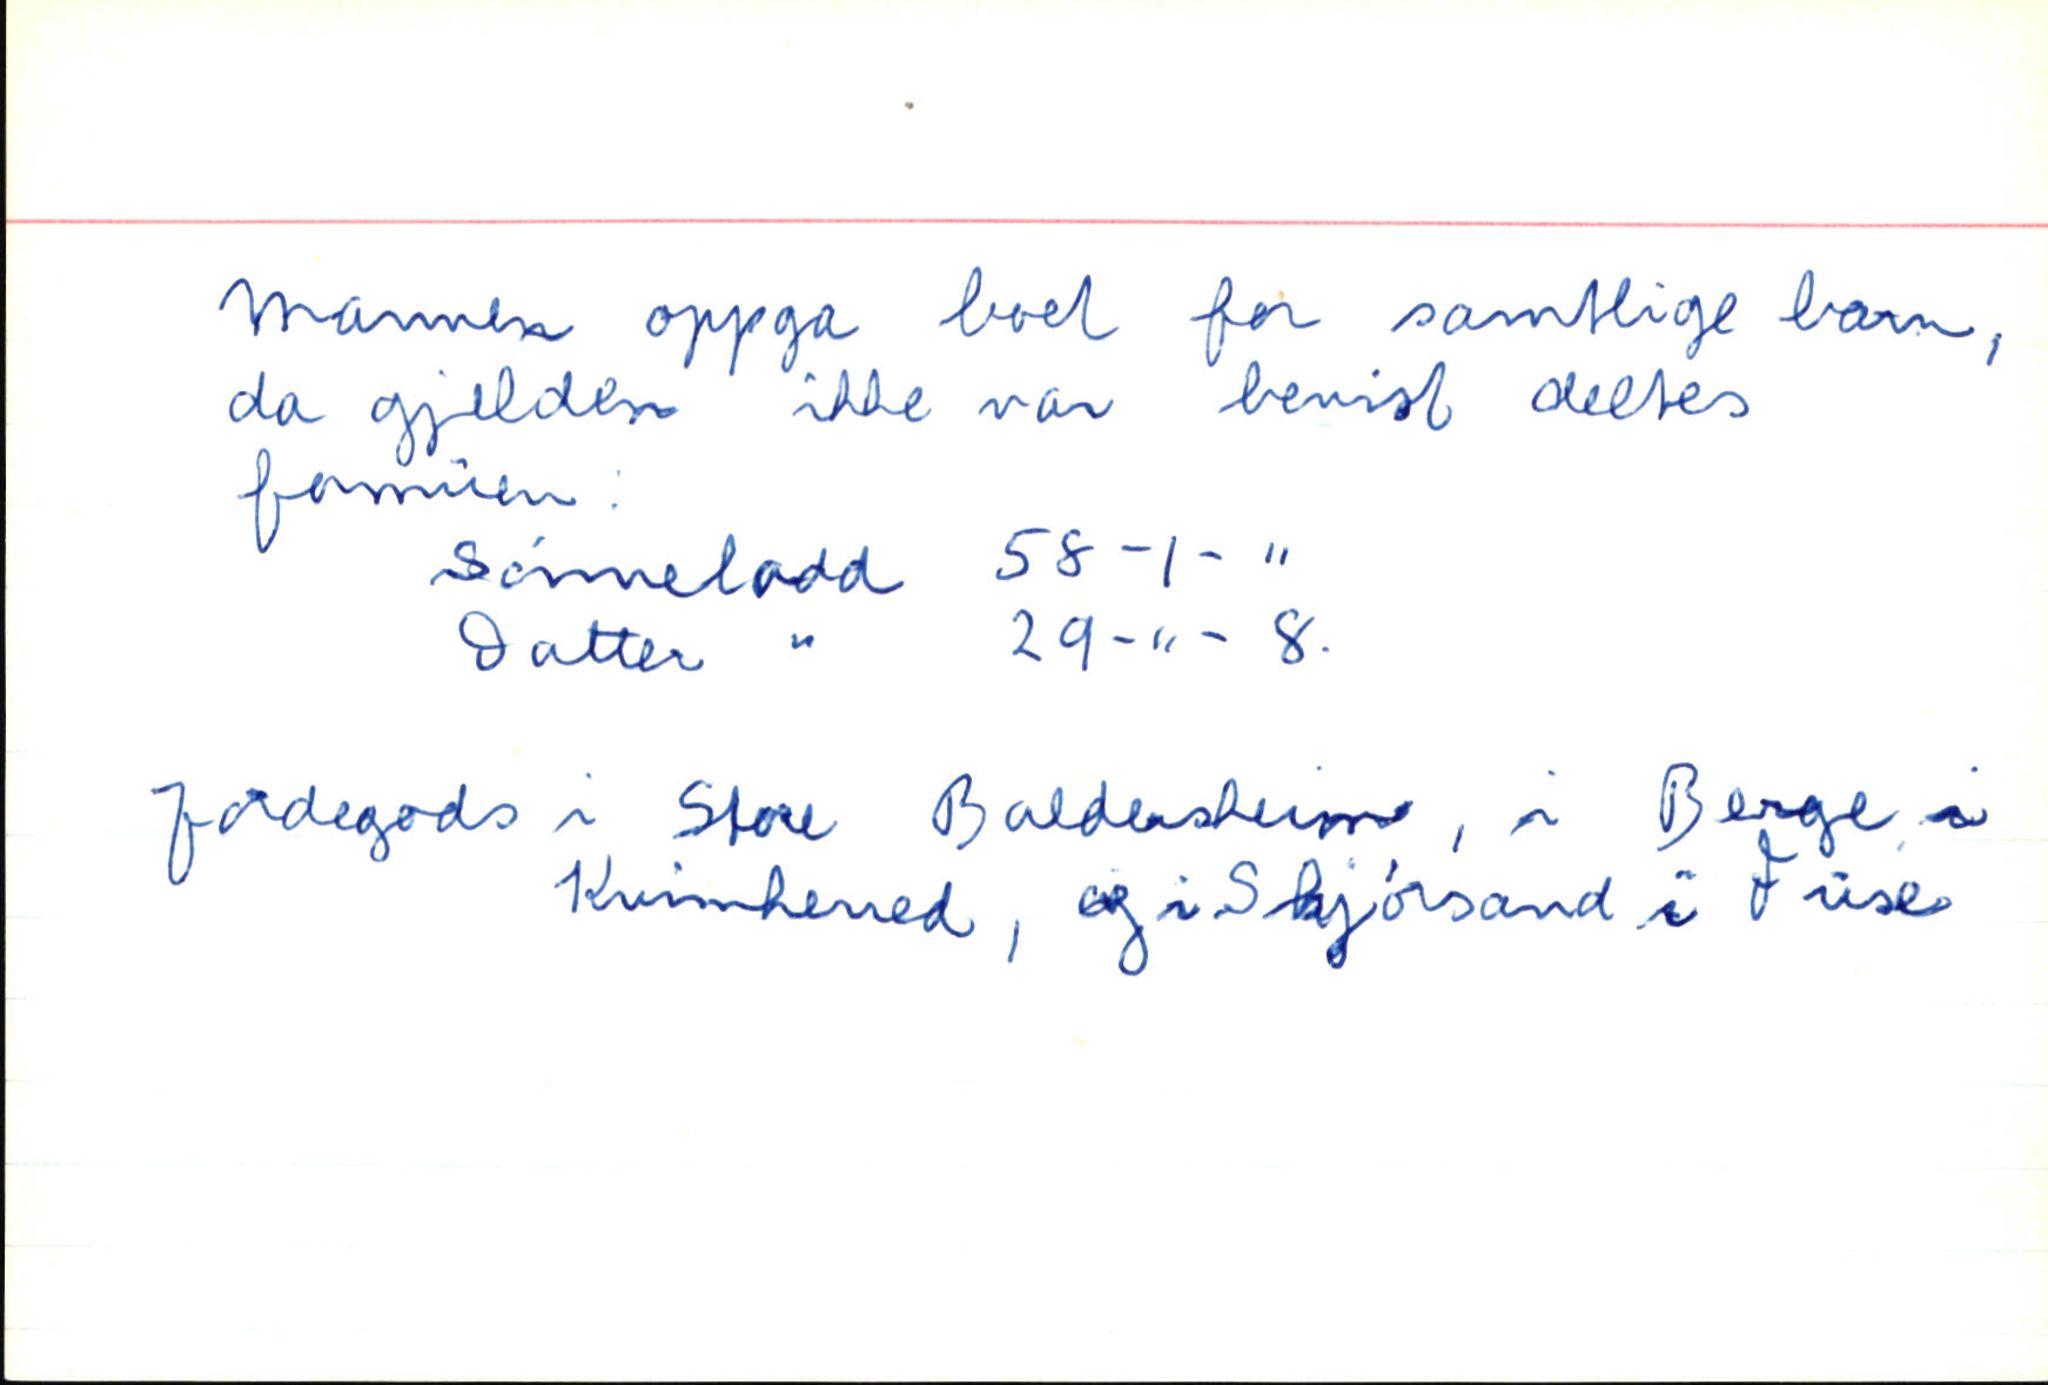 Mannen oppga boet for samtlige barn,
da gjelden ikke var bevist deltes
formuen:
Sønnelodd 58-1-"
Datter " 29-"-8.
Jordegods i Store Baldersheim, i Berge i
Kvinnherred, og i Skjørsand i Fuse